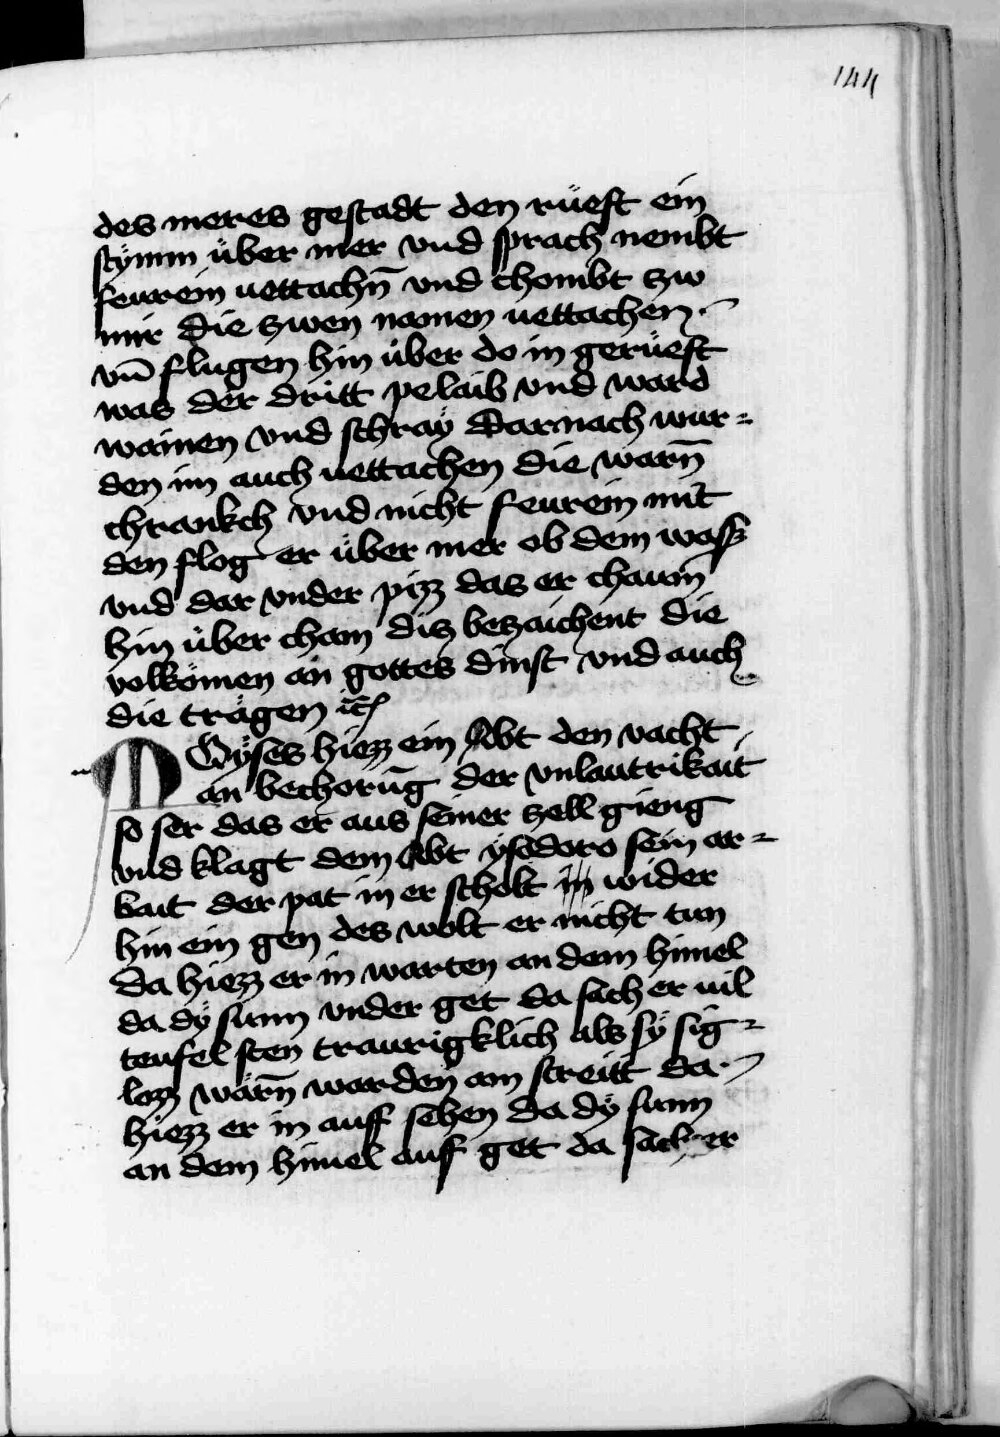 144
des meres gestadt den rüeft ein
stÿmm über mer vnd sprach nembt
feurein uettachn̄ vnd chombt zw
mir die zwen namen uettachen.
vn̄ flugen hin über do in gerüeft
was der dritt pelaib vnd ward
wainen vnd schraÿ Darnach wur=
den im auch uettachen die warn̄
chrankch vnd nicht feurein mit
den flog er über mer ob dem wass
vnd dar vnder pizz das er chaum
hin über cham diz bezaichent die
volkömen an gottes dinst vnd auch
die trägen
MOÿses hiezz ein Abt den vacht
an bechorūg der vnlautrikait
so ser das er aus seiner zell gieng
vnd klagt dem Abt ÿsodoro sein ar=
bait der pat in er scholt in wider
hin ein gen des wolt er nicht tun
Da hiezz er in warten an dem himel
da dÿ sunn vnder get da sach er uil
teufel sten traurigklich als sÿ sig=
loz wärn̄ warden am streitt da.
hiezz er in auff sehen da dÿ sunn
an dem himel auf get da sach er